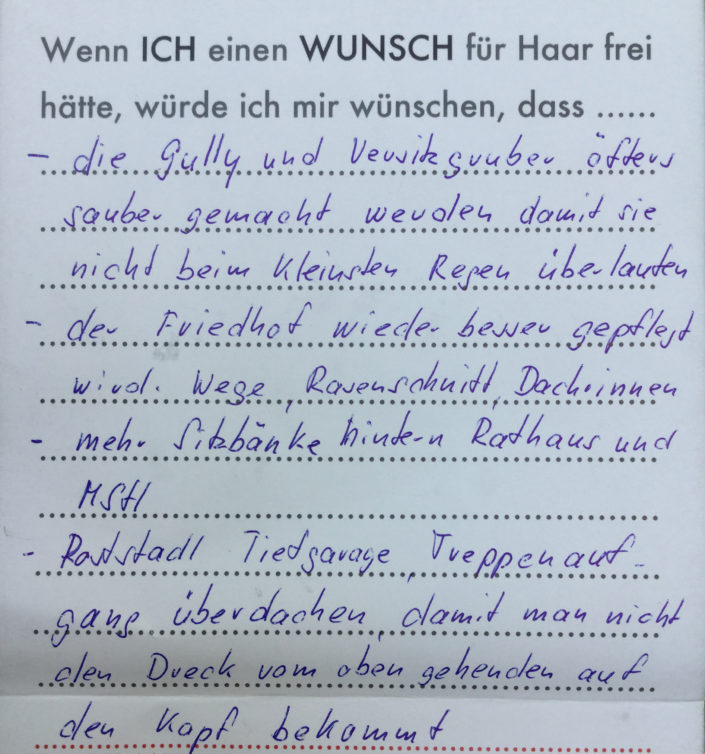 Wenn ICH einen WUNSCH für Haar frei
hätte, würde ich mir wünschen, dass ......
- die Gully und Versitzgruber öfters
sauber gemacht werden damit sie
nicht beim kleinsten Regen überlaufen
- der Friedhof wieder besser gepflegt
wird. Wege, Rasenschnitt, Dachrinnen
- mehr Sitzbänke hintern Rathaus und
MStl
- Tiefgarage, Treppenauf-
gang überdachen, damit man nicht
den Dreck vom oben gehenden auf
den Kopf bekommt